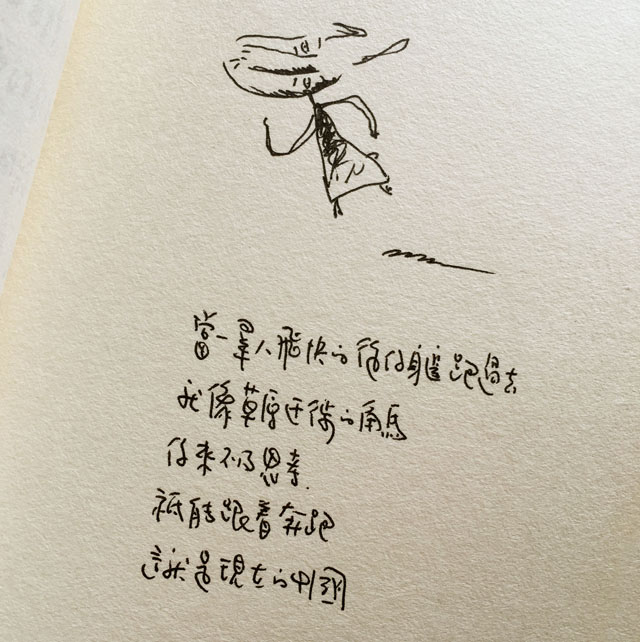 當一羣人飛快的從你身邊跑過去
就像草原迁徙的角馬
你來不及思考
祗能跟着奔跑
這就是現在的中國